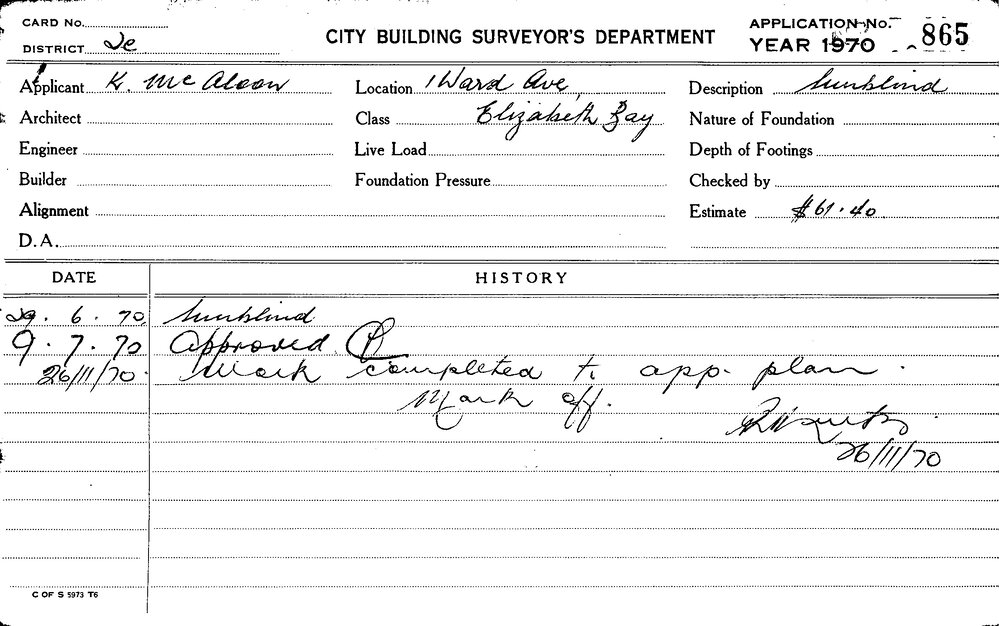 CARD No.
DISTRICT 2e
CITY BUILDING SURVEYOR'S DEPARTMENT
APPLICATION No. 865
YEAR 1970
Applicant K. Mc Aloon
Location 1 Ward Ave,
Description Sunblind
Architect
Class Elizabeth Bay
Nature of Foundation
Engineer
Live Load
Depth of Footings
Builder
Foundation Pressure
Checked by
Alignment
Estimate $61.40
D.A.
DATE HISTORY
29. 6. 70 Sunblind
9. 7. 70 Approved
26/11/70 Work completed to app. plan.
Mark off.
26/11/70
C OF S 5973 T6